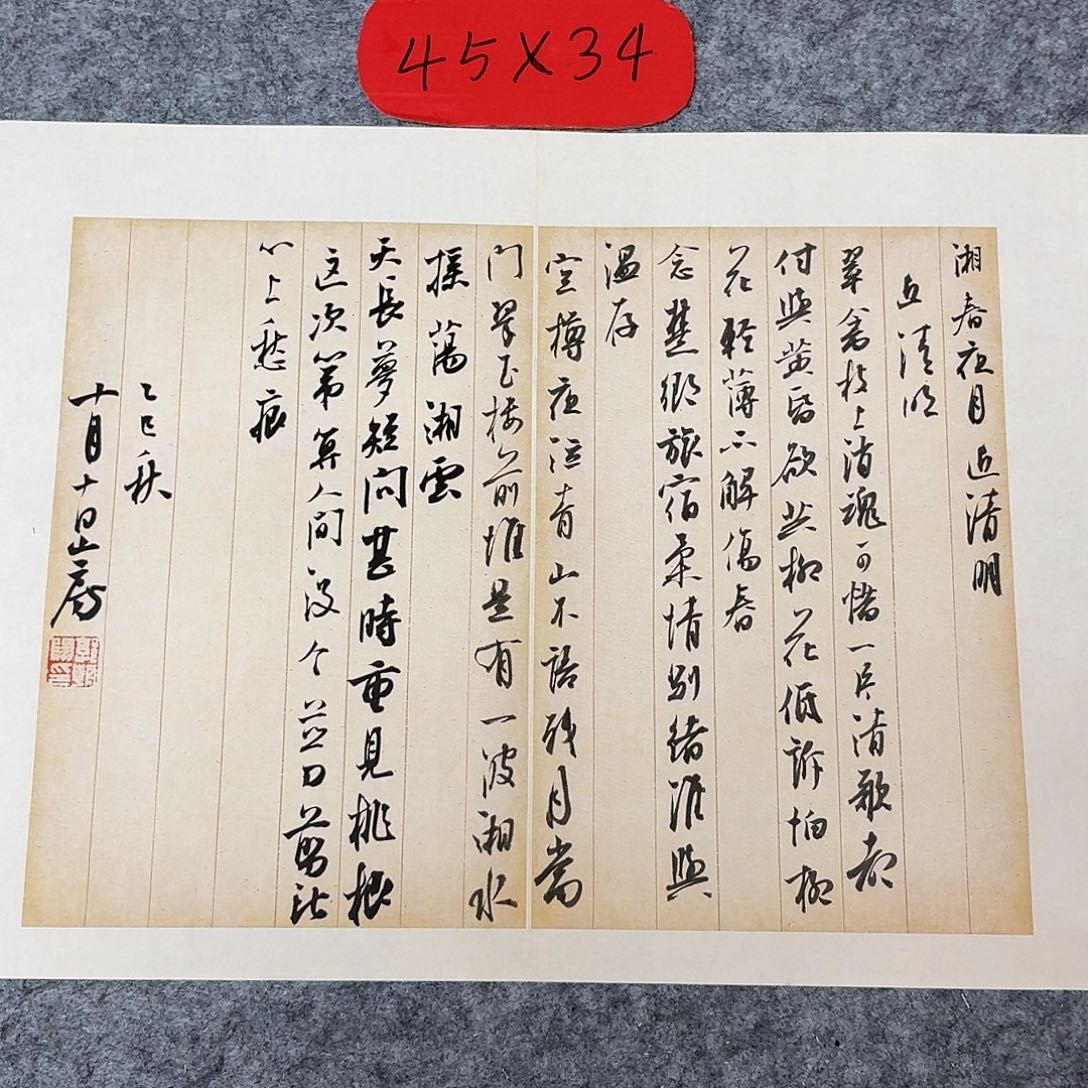 45X34
湘春夜月 近清明
近清明
翠禽枝上消魂可惜一片清歌都
付與黃昏欲共柳花低訴怕柳
花輕薄不解傷春
念楚鄉旅宿柔情別緒誰與
溫存
空樽夜泣青山不語残月當
門翠玉樓前惟是有一波湘水
摇蕩湘雲
天長夢短問甚時重見桃根
这次第算人間没个並刀剪断
心上愁痕
乙巳秋
十月十日